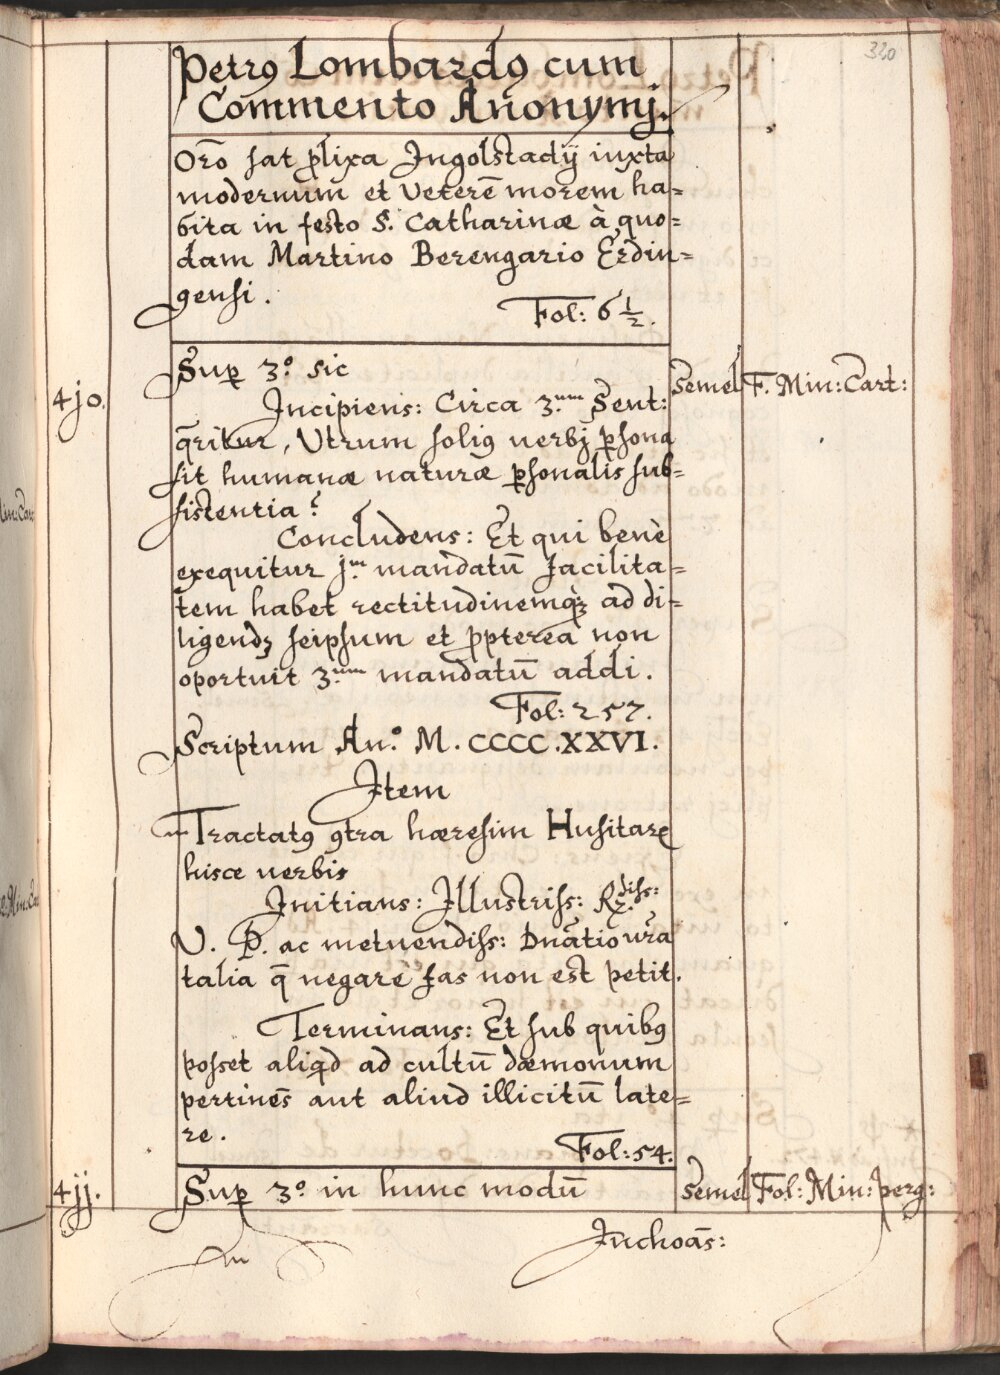 330
Petrꝰ Lombardꝰ cum
Commento Anonymj.
Orõ sat ꝓlixa Jngolstadij iuxta
modernum et Veterē morem ha=
bita in festo S. Catharinæ à quo=
dam Martino Berengario Erdin=
gensi.
Fol: 6 1/2.
4j0.
Suꝑ 3.º sic
semel
F. Min: Cart:
Jncipiens: Circa 3.um Sent:
q̃ritur, Utrum soliꝰ verbj ꝑsona
sit humanæ naturæ ꝑsonalis sub=
sistentia?
Concludens: Et qui benè
exequitur j.m mandatū facilita=
tem habet rectitudinemqꝫ ad di=
ligendꝫ seipsum et ꝓpterea non
oportuit 3.um mandatū addi.
Fol: 257.
Scriptum An.º M.CCCC.XXVI.
Jtem
Tractatꝰ ꝯtra hæresim Husitarꝝ
hisce verbis
Jnitians: Jllustriss: Rx.diss:
V. P. ac metuendiss: Dnãtio vr̃a
talia q̃ negare fas non est petit.
Terminans: Et sub quibꝰ
posset aliqd ad cultū dæmonum
pertinēs aut aliud illicitū late=
re.
Fol: 54.
4jj.
Suꝑ 3.º in hunc modū
semel
Fol: Min: perg:
Jnchoãs: